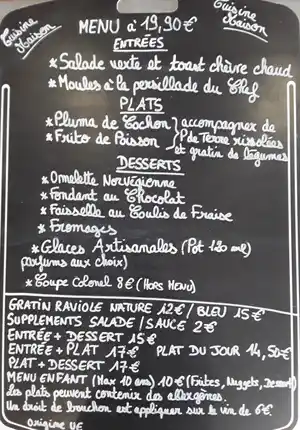 Cuisine Maison
Cuisine Maison
MENU à 19,90€
ENTRÉES
* Salade verte et toast chèvre chaud
* Moules à la persillade du Chef
PLATS
* Pluma de Cochon } accompagner de
* Frito de Poisson } P de Terre rissolées
et gratin de légumes
DESSERTS
* Omelette Norvégienne
* Fondant au Chocolat
* Faisselle au Coulis de Fraise
* Fromages
* Glaces Artisanales (Pot 120 ml)
parfums aux choix)
* Coupe Colonel 8€ (HORS MENU)
GRATIN RAVIOLE NATURE 12€ / BLEU 15€
SUPPLEMENTS SALADE / SAUCE 2€
ENTRÉE + DESSERT 15€
ENTRÉE + PLAT 17€ PLAT DU JOUR 14,50€
PLAT + DESSERT 17€
MENU ENFANT (Max 10 ans) 10€ (Frites, Nuggets, Dessert)
Les plats peuvent contenir des allergènes.
Un droit de bouchon est appliquer sur le vin de 6€.
Origine UE